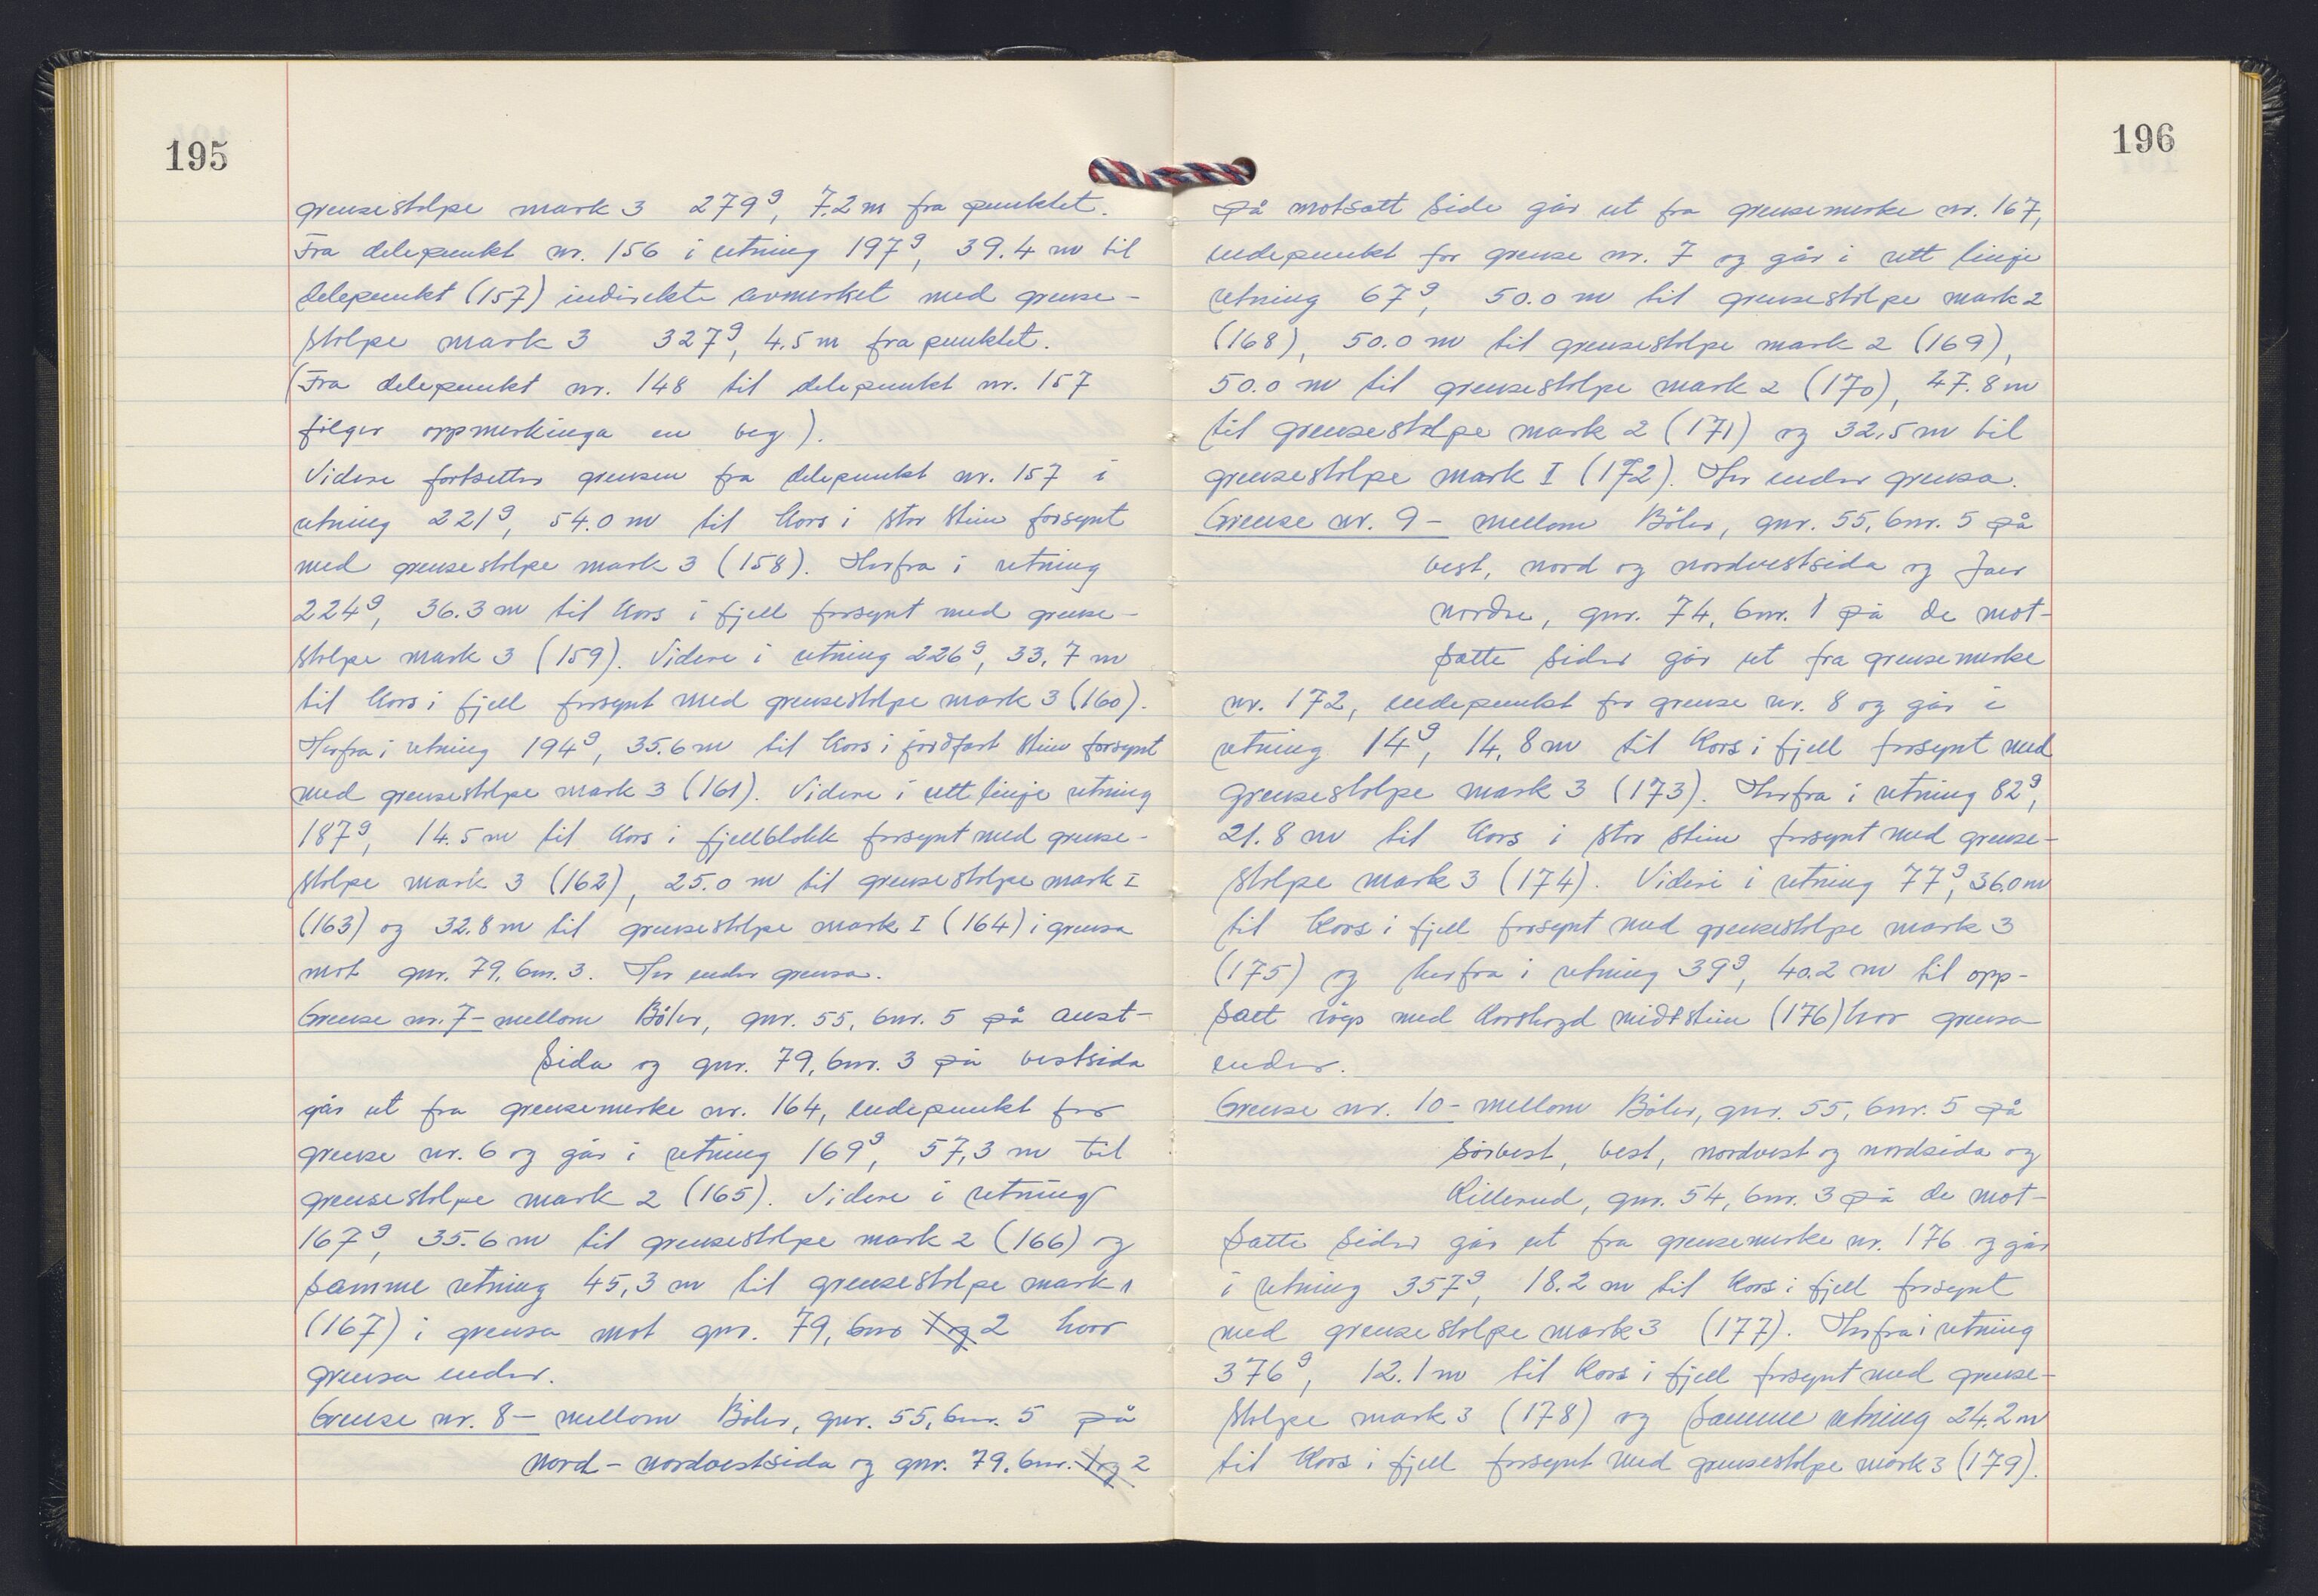 195
grensestolpe mark 3 279g, 7.2 m fra punktet.
Fra delepunkt nr. 156 i retning 197g, 39.4 m til
delepunkt (157) indirekte avmerket med grense-
stolpe mark 3 327g, 4.5 m fra punktet.
(Fra delepunkt nr. 148 til delepunkt nr. 157
følger oppmerkinga en veg).
Videre fortsetter grensen fra delepunkt nr. 157 i
retning 221g, 54.0 m til kors i stor stein forsynt
med grensestolpe mark 3 (158). Herfra i retning
224g, 36.3 m til kors i fjell forsynt med grense-
stolpe mark 3 (159). Videre i retning 226g, 33,7 m
til kors i fjell forsynt med grensestolpe mark 3 (160).
Herfra i retning 194g, 35.6 m til kors i jordfast stein forsynt
med grensestolpe mark 3 (161). Videre i rett linje retning
187g, 14.5 m til kors i fjellblokk forsynt med grense-
stolpe mark 3 (162), 25.0 m til grensestolpe mark I
(163) og 32.8 m til grensestolpe mark I (164) i grensa
mot gnr. 79, bnr. 3. Her ender grensa.
Grense nr. 7 - mellom Böler, gnr. 55, bnr. 5 på aust-
sida og gnr. 79, bnr. 3 på vestsida
går ut fra grensemerke nr. 164, endepunkt for
grense nr. 6 og går i retning 169g, 57,3 m til
grensestolpe mark 2 (165). Videre i retning
167g, 35.6 m til grensestolpe mark 2 (166) og
samme retning 45,3 m til grensestolpe mark 1
(167) i grensa mot gnr. 79, bnr 1 og 2 hvor
grensa ender.
Grense nr. 8 - mellom Böler, gnr. 55, bnr. 5 på
nord - nordvestsida og gnr. 79, bnr. 1 og 2
196
på motsatt side går ut fra grensemerke nr. 167,
endepunkt for grense nr. 7 og går i rett linje
retning 67g, 50.0 m til grensestolpe mark 2
(168), 50.0 m til grensestolpe mark 2 (169),
50.0 m til grensestolpe mark 2 (170), 47.8 m
til grensestolpe mark 2 (171) og 32,5 m til
grensestolpe mark I (172). Her ender grensa.
Grense nr. 9 - mellom Böler, gnr. 55, bnr. 5 på
vest, nord og nordvestsida og Jaer
nordre, gnr. 74, bnr. 1 på de mot-
satte sider går ut fra grensemerke
nr. 172, endepunkt for grense nr. 8 og går i
retning 14g, 14,8 m til kors i fjell forsynt med
grensestolpe mark 3 (173). Herfra i retning 82g,
21.8 m til kors i stor stein forsynt med grense-
stolpe mark 3 (174). Videre i retning 77g, 36.0 m
til kors i fjell forsynt med grensestolpe mark 3
(175) og herfra i retning 39g, 40.2 m til opp-
satt røys med korshogd midtstein (176) hvor grensa
ender.
Grense nr. 10 - mellom Böler, gnr. 55, bnr. 5 på
sørvest, vest, nordvest og nordsida og
Killerud, gnr. 54, bnr. 3 på de mot-
satte sider går ut fra grensemerke nr. 176 og går
i retning 357g, 18.2 m til kors i fjell forsynt
med grensestolpe mark 3 (177). Herfra i retning
376g, 12.1 m til kors i fjell forsynt med grense-
stolpe mark 3 (178) og samme retning 24.2 m
til kors i fjell forsynt med grensestolpe mark 3 (179).